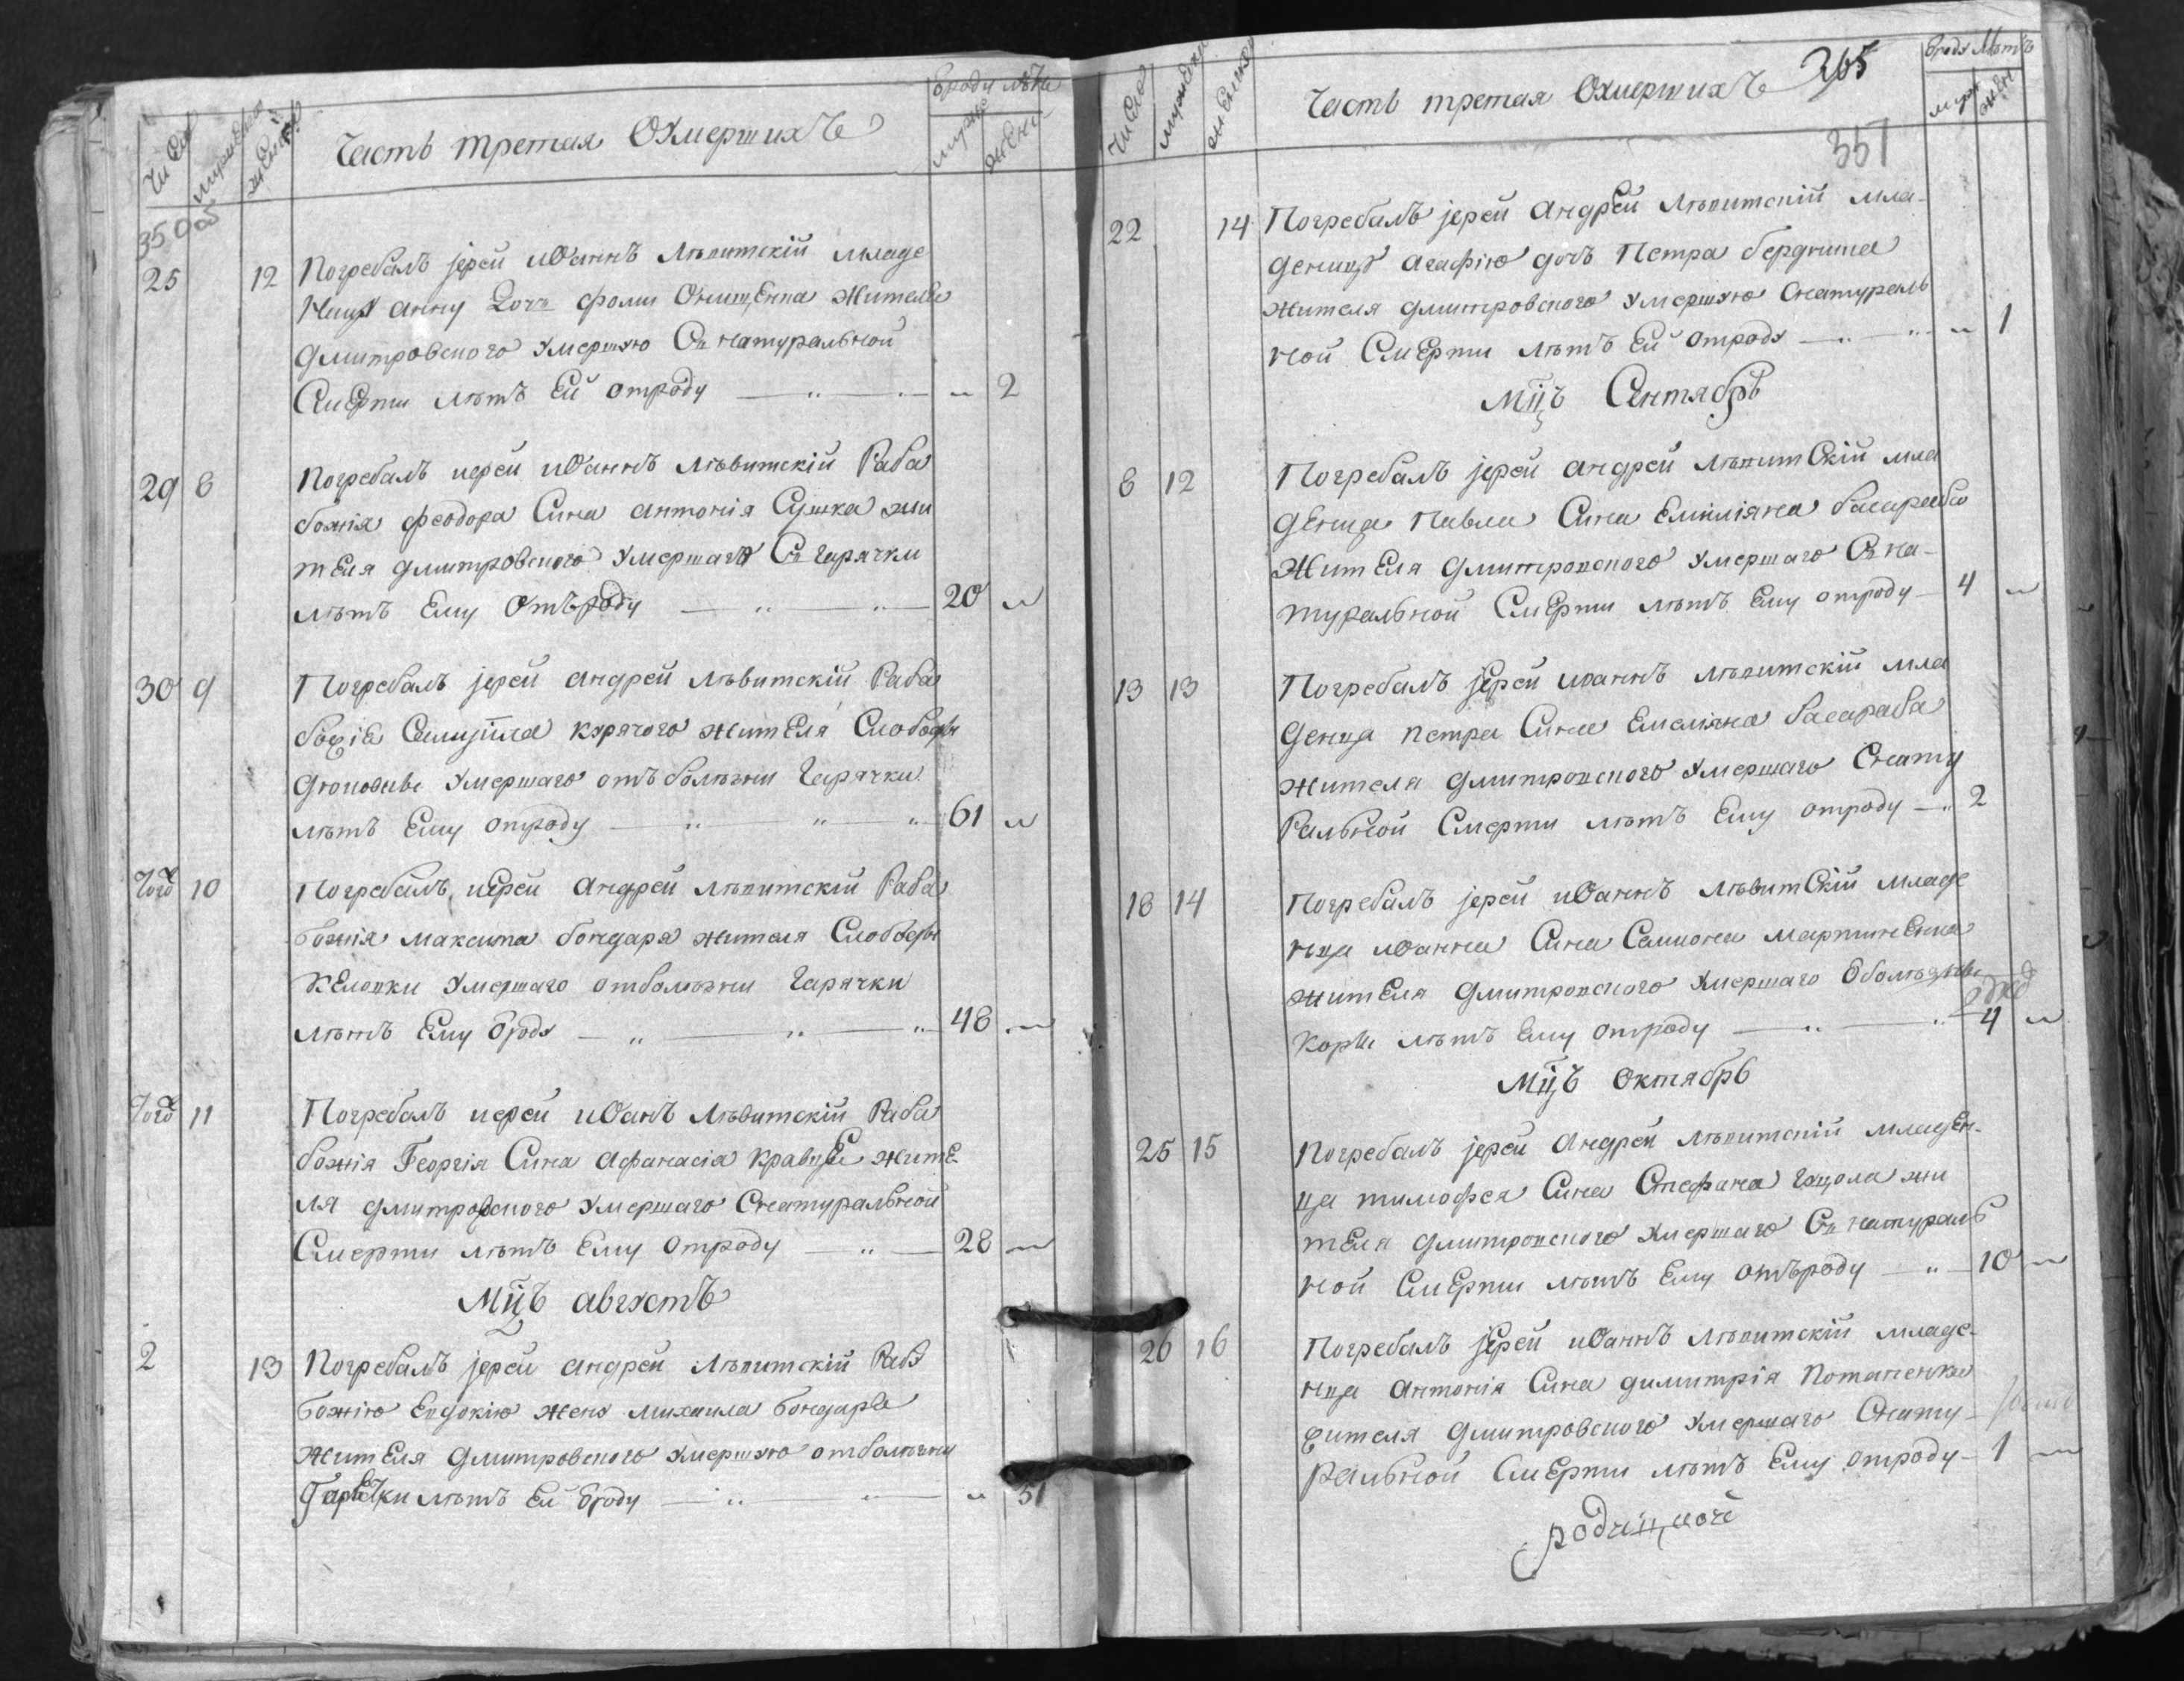 Числа мужеска женска Часть третая Оумершихъ вроду лѣтъ
муже жена
350об
25 12 Погребалъ јерей иоаннъ Лѣвитскій младе
Ницу анну Дочь Фомы Онищенка Жителя
дмитровского умершую Съ натуральной
Смерти лѣтъ Ей отроду — „ — „ 2
29 8 Погребалъ иерей иоаннъ лѣвитскій Раба
божія Феодора Сина антонія Сушка жи
теля дмитровского умершаго Съ гарячки
лѣтъ Ему Отъроду — „ — „ — 20 „
30 9 Погребалъ јерей андрей лѣвитскій Раба
божіе курячого жителя Слободы
умершаго отъ болѣзни Гарячки
лѣтъ Ему отроду — „ — „ — „ 61 „
Того 10 Погребалъ иерей Андрей лѣвитскій Раба
божія максима бондаря жителя Слободы
умершаго отболѣзни Гарячки
лѣтъ Ему вроду — „ — „ — „ 48 „
Того 11 Погребалъ иерей иоанъ лѣвитскій Раба
божія Георгія Сина Афанасія кравца жите
ля дмитровского умершаго Снатуральной
Смерти лѣтъ Ему Отроду — „ — 28 „
Мцъ августъ
2 13 Погребалъ јерей андрей лѣвитскій Рабу
божію Евдокію жену михаила бондаря
жителя дмитровского умершую отболѣзни
Гарячки лѣтъ Ей вроду — „ — „ 51
Числа мужеска женска Часть третая Оумершихъ 265 вроду лѣтъ
муже жен
351
22 14 Погребалъ јерей Андрей лѣвитскій мла-
деницу агафію дочь Петра бердника
жителя дмитровского умершую Снатураль
ной Смерти лѣтъ Ей отроду — „ „ „ 1
Мцъ Сентябрь
8 12 Погребалъ јерей андрей лѣвитскій мла
денца Павла Сина Емиліяна басараба
Жителя дмитровского умершаго Съ на-
туральной Смерти лѣтъ Ему отроду — 4 „
13 13 Погребалъ јерей иоаннъ лѣвитскій мла
денца петра Сина Емеліяна басараба
жителя дмитровского умершаго Снату
Ральной Смерти лѣтъ Ему отроду — „ 2
18 14 Погребалъ јерей иоаннъ лѣвитскій младе
нца иоанна Сина Самиона мартиненка
жителя дмитровского умершаго
лѣтъ Ему отроду — „ — „ 4 „
Мцъ Октябрь
25 15 Погребалъ јерей Андрей лѣвитскій младен-
ца тимофея Сина Стефана жи
теля дмитровского умершаго Съ натураль
ной Смерти лѣтъ Ему отъроду — „ — 10 „
26 16 Погребалъ јерей иоаннъ лѣвитскій младе-
нца Антонія Сина димитрія Потапенка
жителя дмитровского умершаго Снату-
ральной Смерти лѣтъ Ему отроду — 1 „